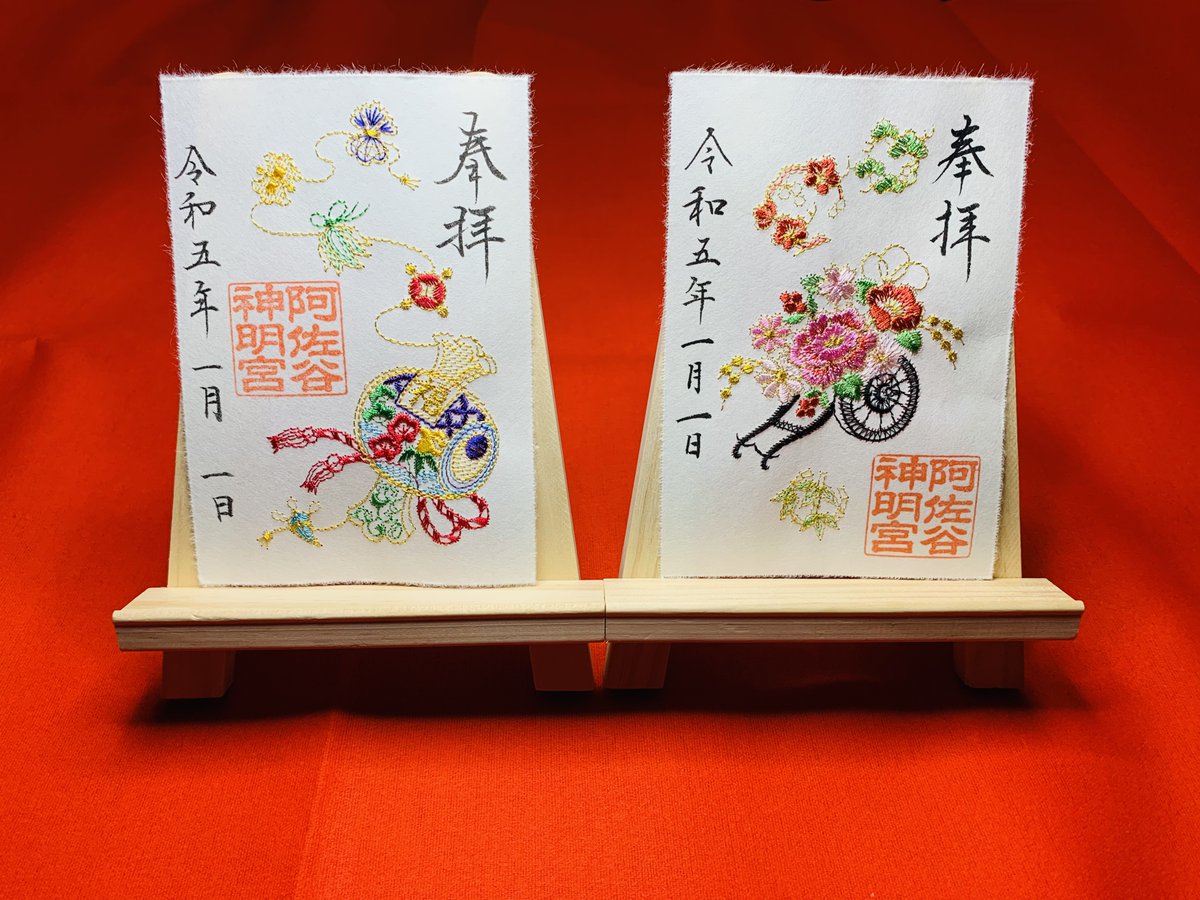 奉拝
阿佐谷
神明宮
令和五年 一月 一日
奉拝
阿佐谷
神明宮
令和五年一月一日